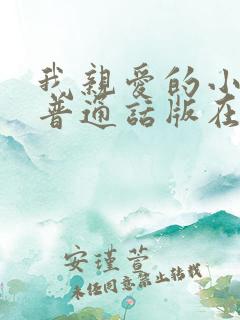 我亲爱的小
普通話版在
安瑾萱
未经同意禁止转载